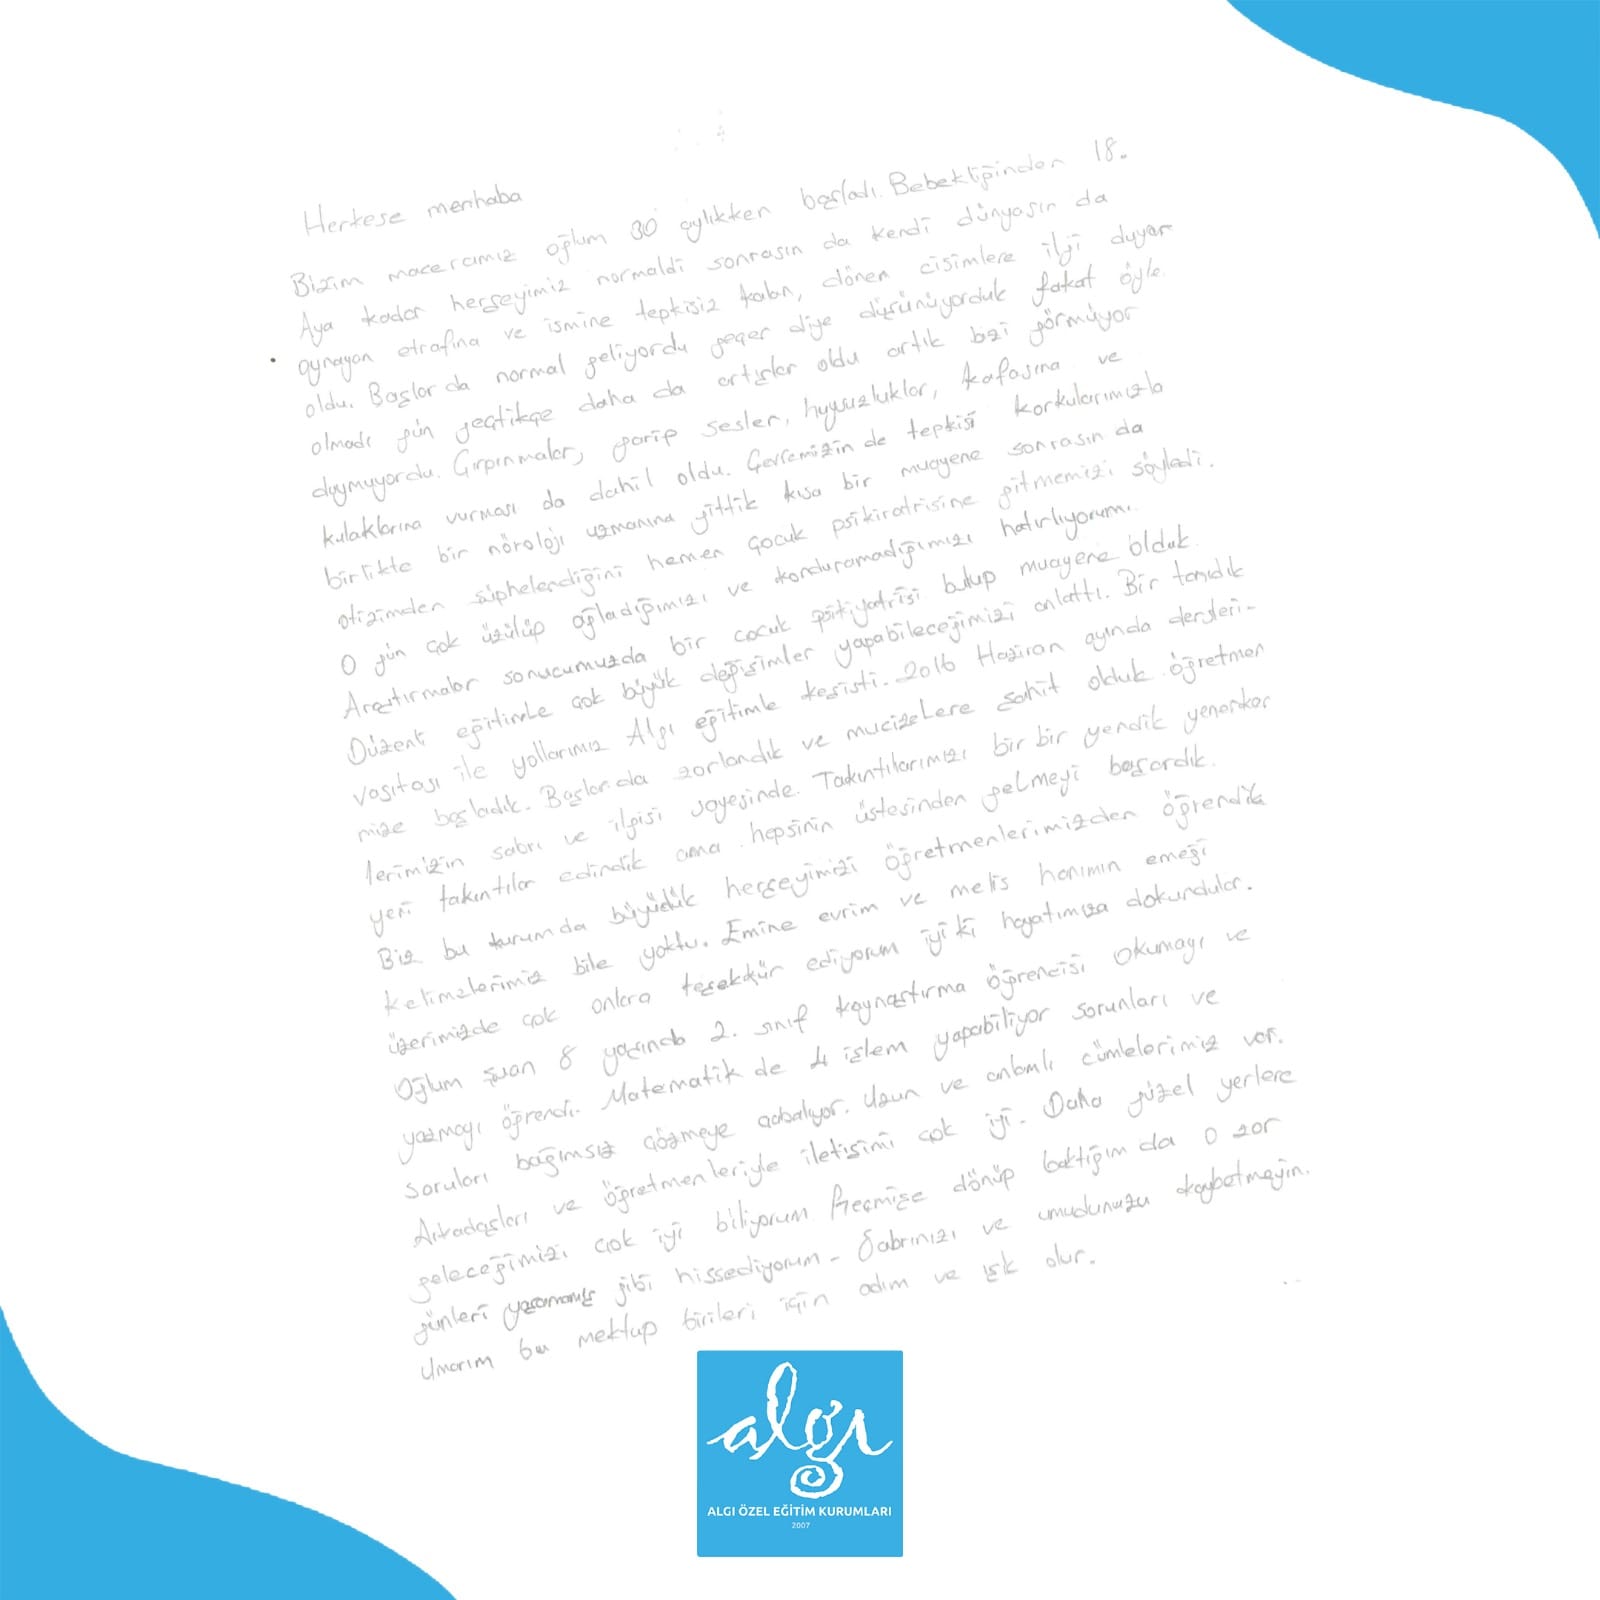 Herkese merhaba
Bizim maceramız oğlum 30 aylıkken başladı. Bebekliğinden 18.
Aya kadar herşeyimiz normaldi sonrasın da kendi dünyasın da
oynayan etrafına ve ismine tepkisiz kalan, dönen cisimlere ilgi duyar
oldu. Başlar da normal geliyordu geçer diye düşünüyorduk fakat öyle
olmadı gün geçtikçe daha da artışlar oldu artık bizi görmüyor
duymuyordu. Çırpınmalar, garip sesler, huysuzluklar, kafasına ve
kulaklarına vurması da dahil oldu. Çevremizin de tepkisi korkularımızla
birlikte bir nöroloji uzmanına gittik kısa bir muayene sonrasın da
otizimden şüphelendiğini hemen çocuk psikiratrisine gitmemizi söyledi.
O gün çok üzülüp ağladığımızı ve konduramadığımızı hatırlıyorum.
Araştırmalar sonucumuzda bir çocuk psikiyatrisi bulup muayene olduk.
Düzenli eğitimle çok büyük değişimler yapabileceğimizi anlattı. Bir tanıdık
vasıtası ile yollarımız Algı eğitimle kesişti. 2016 Haziran ayında dersleri-
mize başladık. Başlarda zorlandık ve mucizelere şahit olduk öğretmen
lerimizin sabrı ve ilgisi sayesinde. Takıntılarımızı bir bir yendik yenerken
yeni takıntılar edindik ama hepsinin üstesinden gelmeyi başardık.
Biz bu kurumda büyüdük herşeyimizi öğretmenlerimizden öğrendik
kelimelerimiz bile yoktu. Emine evrim ve melis hanımın emeği
üzerimizde çok onlara teşekkür ediyorum iyi ki hayatımıza dokundular.
Oğlum şuan 8 yaşında 2. sınıf kaynaştırma öğrencisi okumayı ve
yazmayı öğrendi. Matematik de 4 işlem yapabiliyor sorunları ve
soruları bağımsız çözmeye çabalıyor. Uzun ve anlamlı cümlelerimiz var.
Arkadaşları ve öğretmenleriyle iletişimi çok iyi. Daha güzel yerlere
geleceğimizi çok iyi biliyorum. Geçmişe dönüp baktığım da o zor
günleri yaşamamış gibi hissediyorum - Sabrınızı ve umudunuzu kaybetmeyin.
Umarım bu mektup birileri için adım ve ışık olur.
algı
ALGI ÖZEL EĞİTİM KURUMLARI
2007